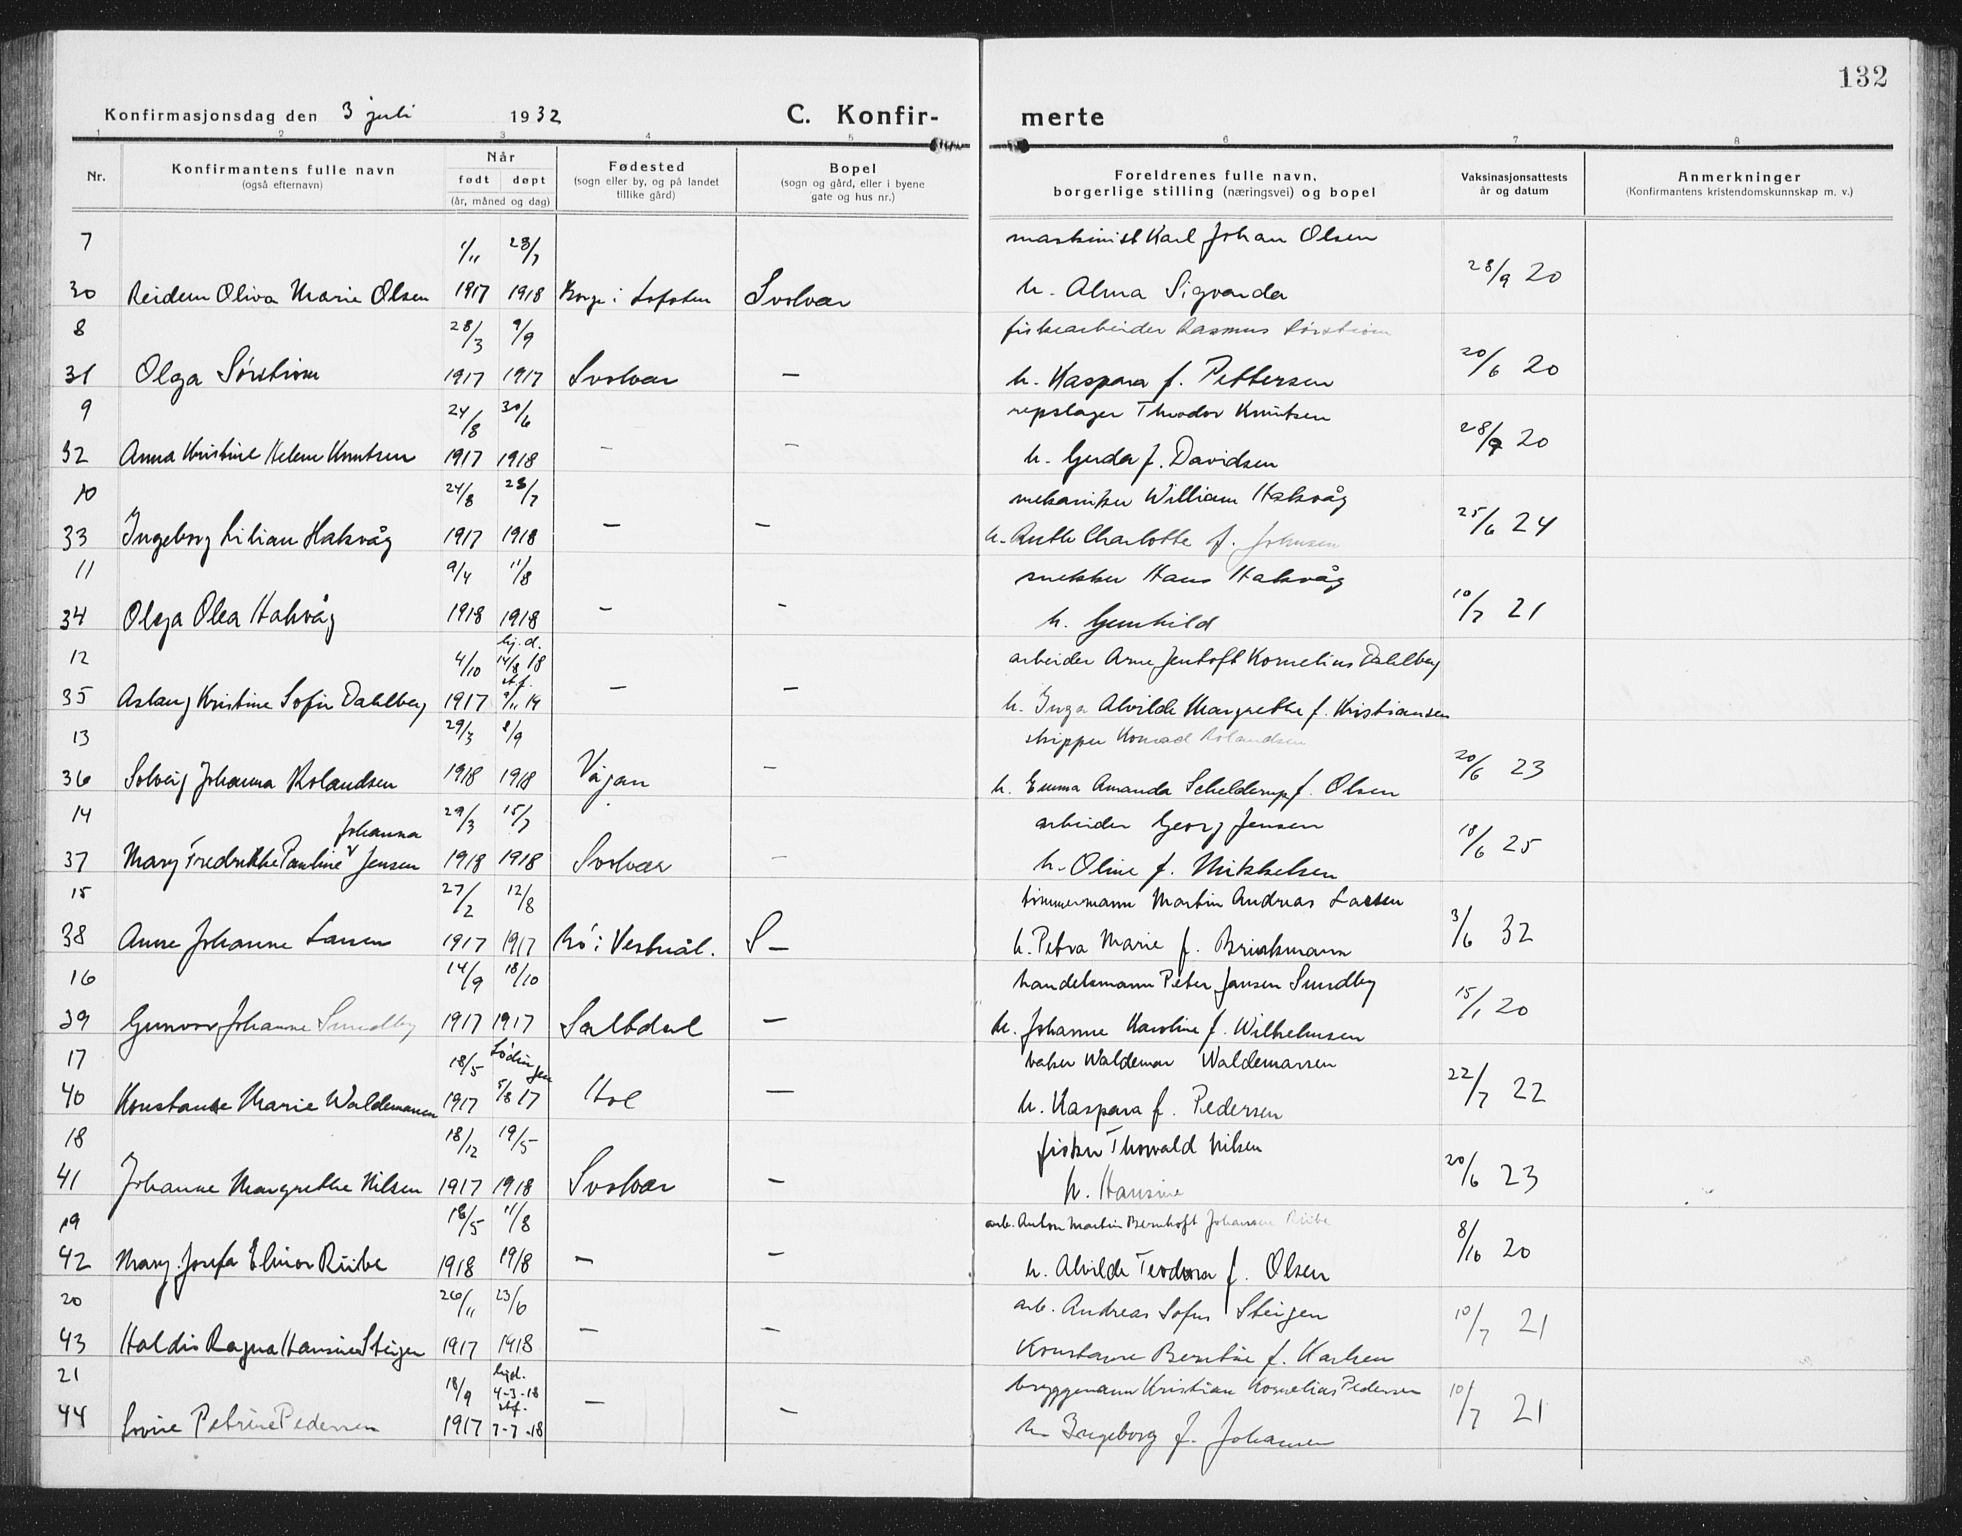 132
Konfirmasjonsdag den 3 juli 1932 C. Konfir- merte
1 2 3 4 5 6 7 8
Nr. Konfirmantens fulle navn (også efternavn) Når født døpt (år, måned og dag) Fødested (sogn eller by, og på landet tillike gård) Bopel (sogn og gård, eller i byene gate og hus nr.) Foreldrenes fulle navn, borgerlige stilling (næringsvei) og bopel Vaksinasjonsattests år og datum Anmerkninger (Konfirmantens kristendomskunnskap m. v.)
7 1/11 28/7 maskinist Karl Johan Olsen 28/9 20
30 Reidun Oliva Marie Olsen 1917 1918 Borge i Lofoten Svolvær h. Alma Sigvarda
8 28/3 9/9 fiskearbeider Rasmus Sørstrøm 20/6 20
31 Olga Sørstrøm 1917 1917 Svolvær — h. Kaspara f. Pettersen
9 24/8 30/6 repslager Theodor Knutsen 28/9 20
32 Anna Kristine Helene Knutsen 1917 1918 — — h. Gerda f. Davidsen
10 24/8 28/7 mekaniker William Hakvåg 25/6 24
33 Ingeborg Lilian Hakvåg 1917 1918 — — h. Ruth Charlotte f. Johnsen
11 9/4 11/8 snekker Hans Hakvåg 10/7 21
34 Olga Olea Hakvåg 1918 1918 — - h. Gunhild
12 4/10 hj.d. 14/8 18 arbeider Arne Jentoft Kornelius Dahlberg
35 Aslaug Kristine Sofie Dahlberg 1917 st.f. 9/11 19 — — h. Inga Alvilde Margrethe f. Kristiansen
13 29/3 8/9 skipper Konrad Rolandsen 20/6 23
36 Solveig Johanna Rolandsen 1918 1918 Vågan — h. Emma Amanda Schelderup f. Olsen
14 29/3 15/7 arbeider Georg Jensen 18/6 25
37 Mary Fredrikke Pauline Johanna Jensen 1918 1918 Svolvær — h. Oline f. Mikkelsen
15 27/2 12/8 tømmermann Martin Andreas Larsen 3/6 32
38 Anne Johanne Larsen 1917 1917 Bø i Vesterål. S — h. Petra Marie f. Brinkmann
16 14/9 18/10 handelsmann Peter Jansen Sundby 15/1 20
39 Gunvor Johanne Sundby 1917 1917 Saltdal — h. Johanne Karoline f. Wilhelmsen
17 18/5 Lødingen baker Waldemar Waldemarsen 22/7 22
40 Konstanse Marie Waldemarsen 1917 5/8 17 Hol — h. Kaspara f. Pedersen
18 18/12 19/5 fisker Thorvald Nilsen 20/6 23
41 Johanne Margrethe Nilsen 1917 1918 Svolvær — h. Hansine
19 18/5 11/8 arb. Anton Martin Bernhoft Johansen Riibe 8/10 20
42 Mary Josefa Elinor Riibe 1918 1918 — — h. Alvilde Teodora f. Olsen
20 26/11 23/6 arb. Andreas Sofus Steigen 10/7 21
43 Haldis Ragna Hansine Steigen 1917 1918 — — Konstanse Berntine f. Karlsen
21 18/9 hjd. 4-3-18 bryggemann Kristian Kornelius Pedersen 10/7 21
44 Lovise Petrine Pedersen 1917 stf. 7-7-18 — — h. Ingeborg f. Johansen